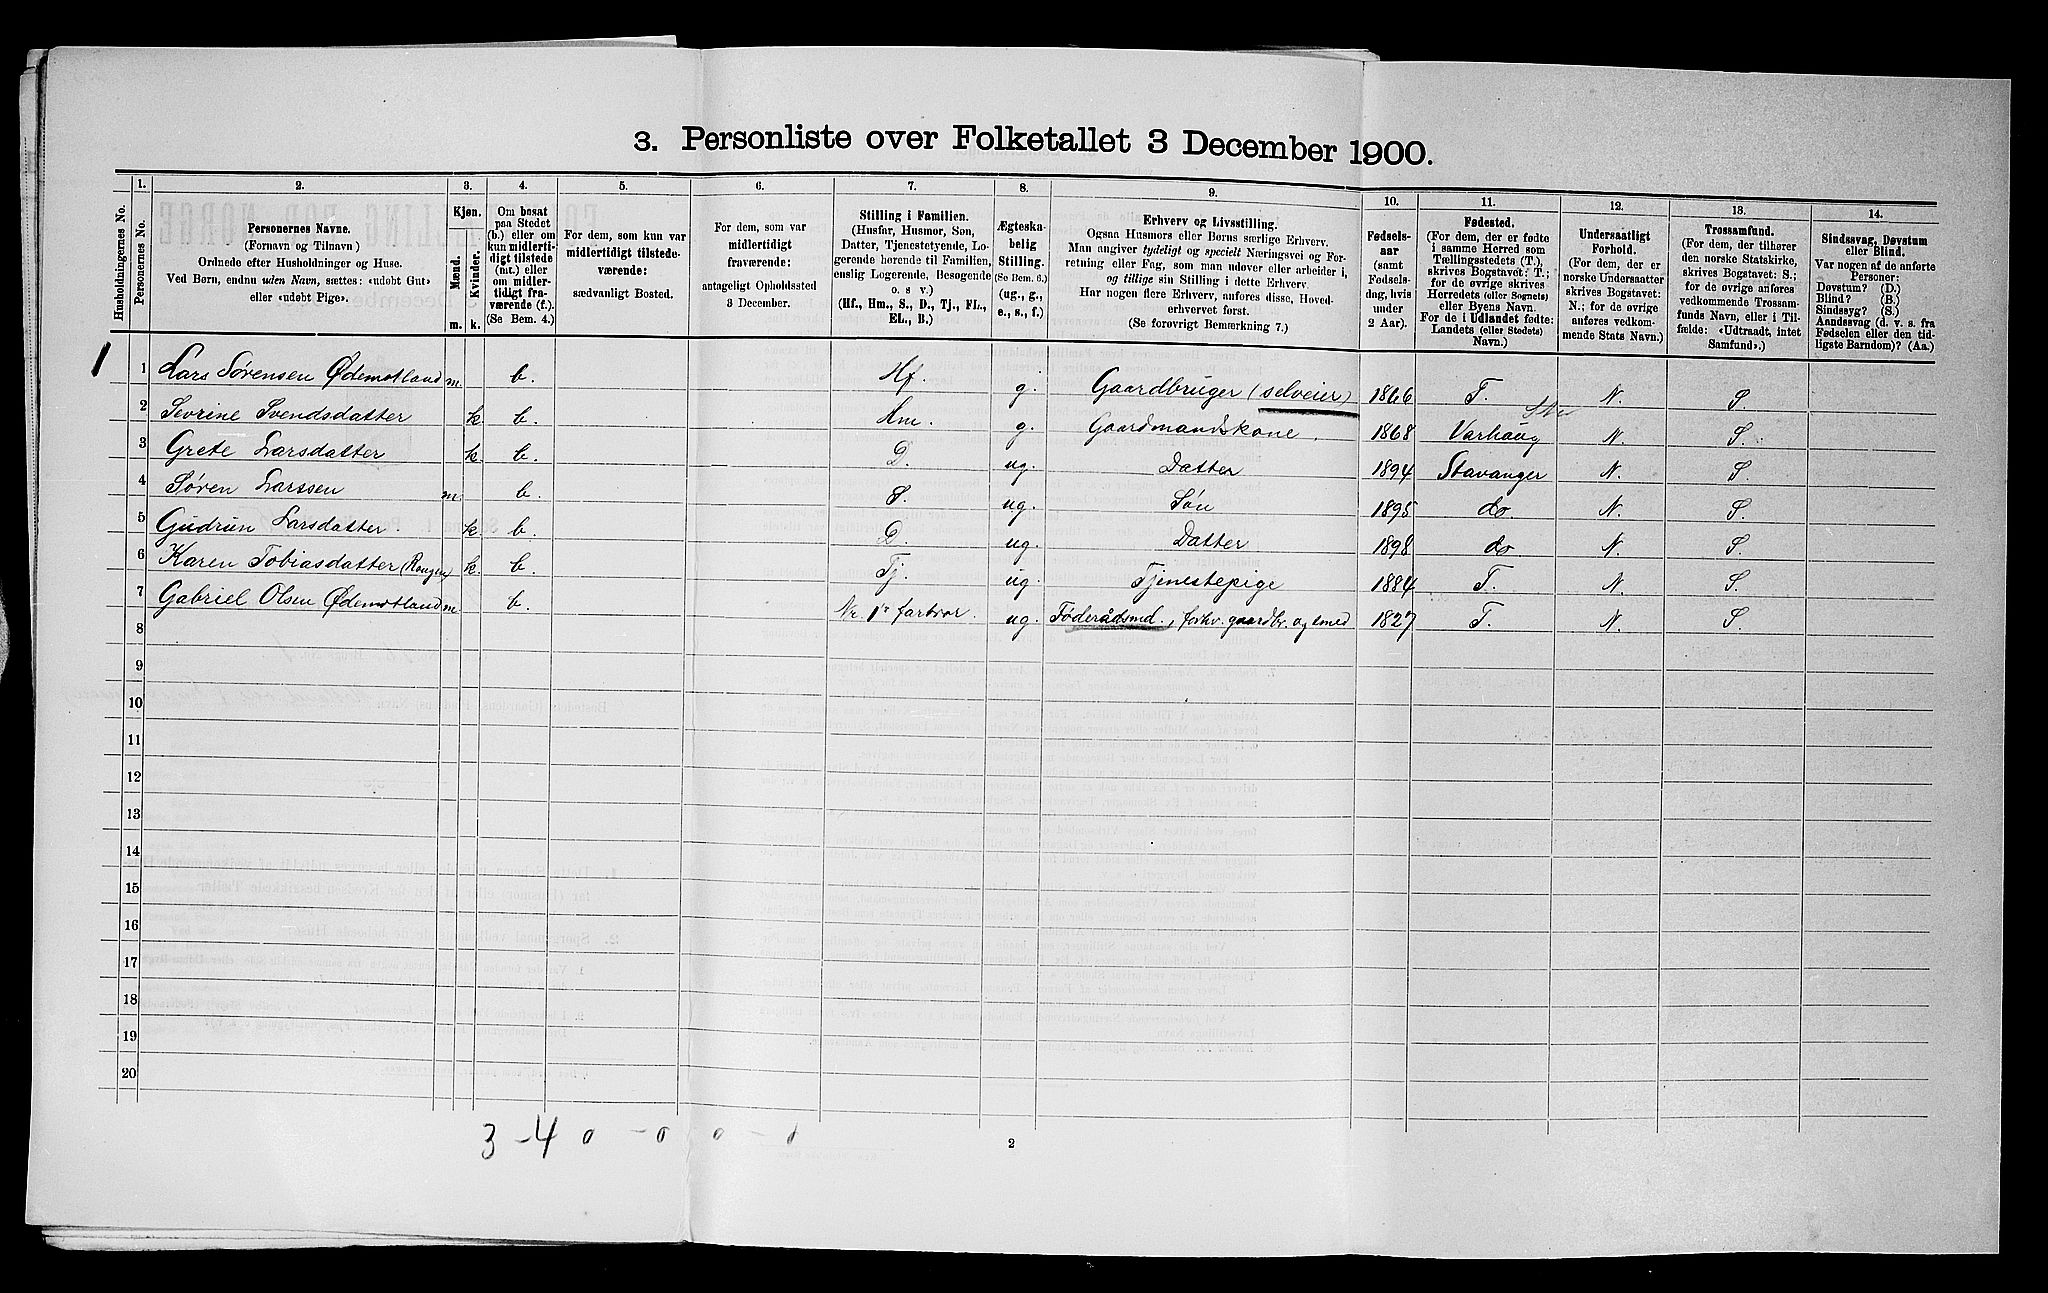 3. Personliste over Folketallet 3 December 1900.
Husholdningernes No.
1.
Personernes No.
2.
Personernes Navne.
(Fornavn og Tilnavn)
Ordnede efter Husholdninger og Huse.
Ved Børn, endnu uden Navn, sættes: «udøbt Gut»
eller «udøbt Pige».
3.
Kjøn.
Mænd.
Kvinder.
m.
k.
4.
Om bosat
paa Stedet
(b.) eller om
kun midlerti-
digt tilstede
(mt.) eller
om midler-
tidigt fra-
værende (f.)
(Se Bem. 4.)
5.
For dem, som kun var
midlertidigt tilstede-
værende:
sædvanligt Bosted.
6.
For dem, som var
midlertidigt
fraværende:
antageligt Opholdssted
3 December.
7.
Stilling i Familien.
(Husfar, Husmor, Søn,
Datter, Tjenestetyende, Lo-
gerende hørende til Familien,
enslig Logerende, Besøgende
o. s v.)
(Hf., Hm., S., D., Tj., FL.,
EL., B.)
8.
Ægteska-
belig
Stilling.
(Se Bem. 6.)
(ug., g.,
e., s., f.)
9.
Erhverv og Livsstilling.
Ogsaa Husmors eller Børns særlige Erhverv.
Man angiver tydeligt og specielt Næringsvei og For-
retning eller Fag, som man udøver eller arbeider i,
og tillige sin Stilling i dette Erhverv.
Har nogen flere Erhverv, anføres disse, Hoved-
erhvervet først.
(Se forøvrigt Bemærkning 7.)
10.
Fødsels-
aar
(samt
Fødsels-
dag, hvis
under
2 Aar).
11.
Fødested.
(For dem, der er fødte
i samme Herred som
Tællingsstedets (T.),
skrives Bogstavet: T.;
for de øvrige skrives
Herredets (eller Sognets)
eller Byens Navn.
For de i Udlandet fødte:
Landets (eller Stedets)
Navn.)
12.
Undersaatligt
Forhold.
(For dem, der er
norske Undersaatter
skrives Bogstavet:
N.; for de øvrige
anføres vedkom-
mende Stats Navn.)
13.
Trossamfund.
(For dem, der tilhører
den norske Statskirke,
skrives Bogstavet: S.;
for de øvrige anføres
vedkommende Trossam-
funds Navn, eller i Til-
fælde: «Udtraadt, intet
Samfund».)
14.
Sindssvag, Døvstum
eller Blind.
Var nogen af de anførte
Personer:
Døvstum? (D.)
Blind? (B.)
Sindssyg? (S.)
Aandssvag (d. v. s. fra
Fødselen eller den tid-
ligste Barndom)? (Aa.)
1 1 Lars Sørensen Ødemotland m. b. Hf. g. Gaardbruger (selveier) 1866 T. N. S.
2 Sevrine Svendsdatter k. b. Hm. g. Gaardmandskone. 1868 Varhaug N. S.
3 Grete Larsdatter k. b. D. ug. Datter 1894 Stavanger N. S.
4 Søren Larssen m. b. S. ug. Søn 1895 do. N. S.
5 Gudrun Larsdatter. k. b. D. ug. Datter 1898 do N. S.
6 Karen Tobiasdatter k. b. Tj. ug. Tjenestepige 1884 T. N. S.
7 Gabriel Olsen Ødemotland m. b. No. 1s farbror. ug. Føderådsmd., forhv. gaardbr. og smed 1827 T. N. S.
8
9
10
11
12
13
14
15
16
17
18
19
20
3 - 4 0 - 0 0 - 1
2